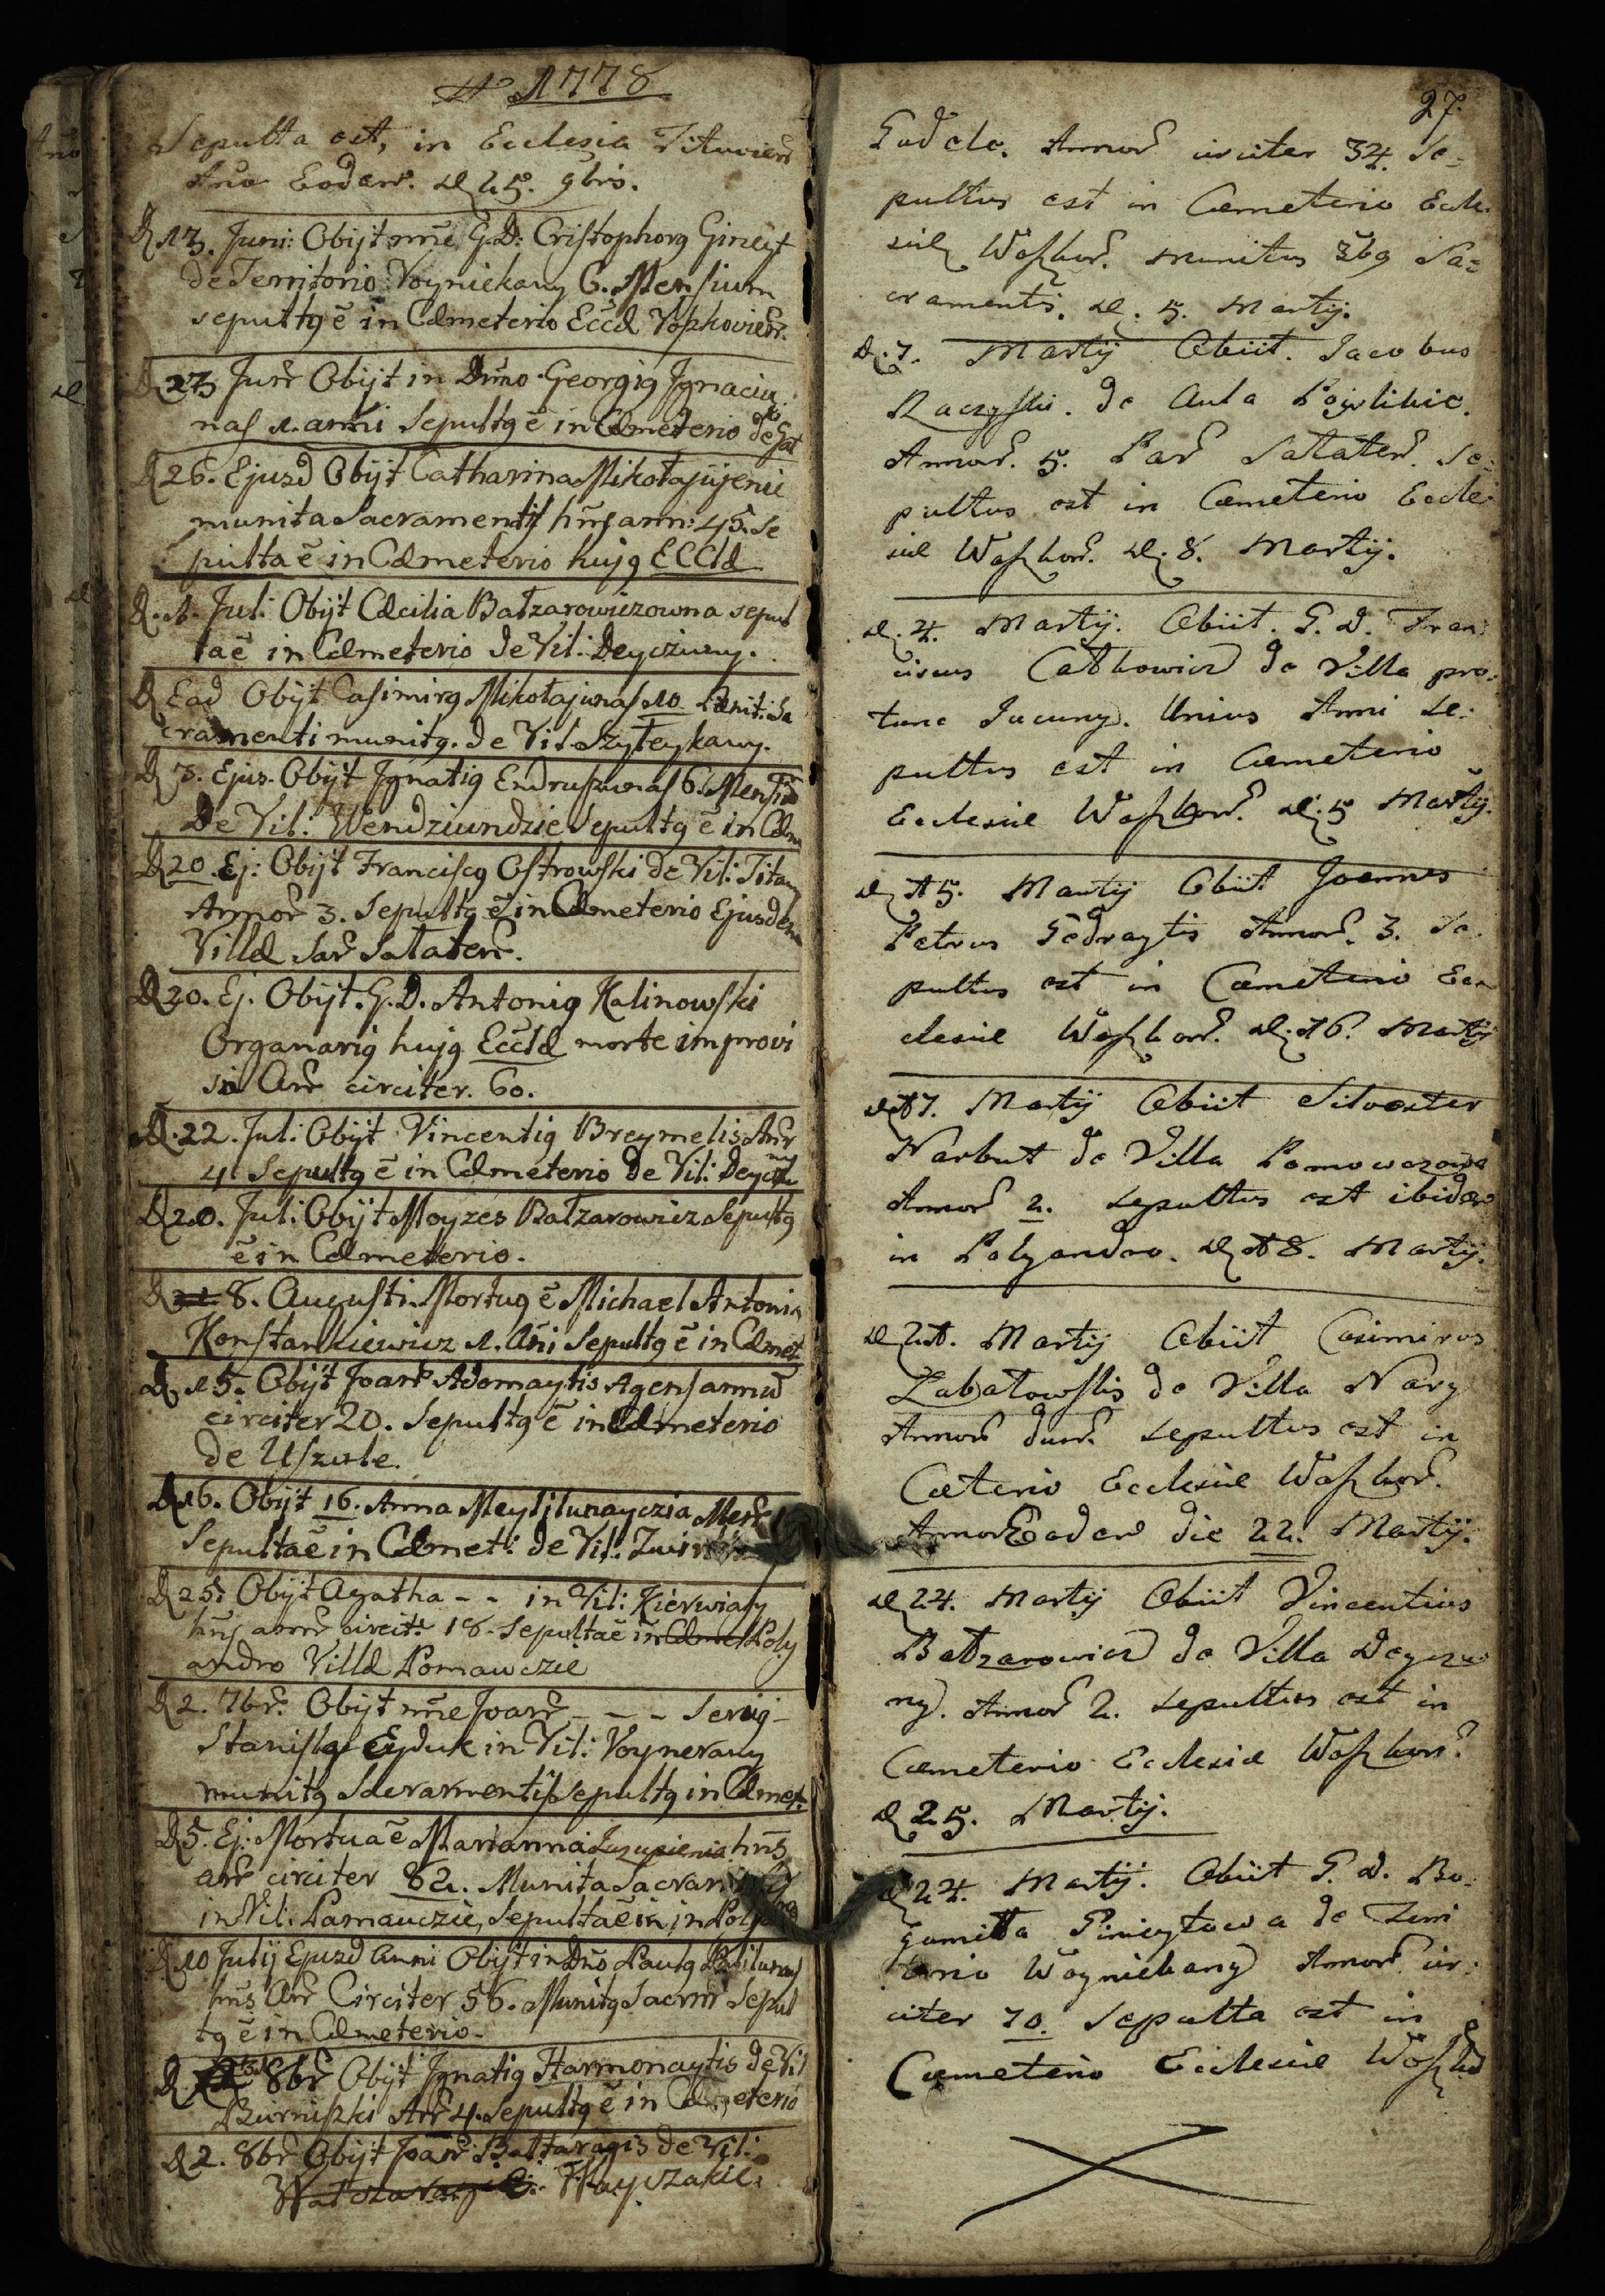 A 1778
Sepulta est, in Ecclesia Titovien
Año Eodem. D 25. 9bris.
D 13. Juni: Obijt mñe G.D: Cristophorg Gineyt
de Territorio Voyniekany 6. Mensium
sepultg ē in Cæmeterio Eccæ Vopkovien.
D 23 Jun Obijt in Dño Georgig Jgnaciu
nas 1. anni Sepultg ē in Cæmeterio de
D 26. Ejusd Obijt Catharina Mikołajijenie
munita Sacramentis hñs ann: 45. Se
pulta ē in Cæmeterio hujg ECClæ
D. 1. Juli Obijt Cæcilia Bałzarowiczowna sepul
ta ē in Cæmeterio de Vil: Deyczuny.
D Ead Obijt Casimirg Mikołajunas 10
cramenti munitg. de Vil Szyłeykany.
D 3. Ejus. Obijt Jgnatig Endruszunas 6. Mensiū
De Vil: Wendziundzie Sepultg ē in Cæm
D 20. Ej: Obijt Franciscg Ostrowski de Vil: Titany
Annor 3. Sepultg ē in Cæmeterio Ejusdem
Villæ Par Sałaten.
D 20. Ej. Obijt. G.D. Antonig Kalinowski
Organarig hujg Ecclæ morte improvi
sa An circiter. 60.
D. 22. Jul: Obijt Vincentig Breymelis An
4 Sepultg ē in Cæmeterio de Vil: Deyczu
ny
D 20. Jul: Obijt Moyzes Bałzarowicz Sepultg
ē in Cæmeterio.
D 8. Augusti. Mortug ē Michael Antonig
Konstankiewicz 1. Añi Sepultg ē in Cæmet
D 15. Obijt Joan Adomaytis Agens annu
circiter 20. Sepultg ē in Cæmeterio
de Uszule.
D 16. Obijt 16. Anna
Sepulta ē in Cæmet: de Vil.
D 25. Obijt Agatha - - in Vil: Kierwiany
hñs ann circit: 18. Sepulta ē in Cæmet Poly
andro Villæ Pomawczie
D 2. 7br. Obijt mñe Joan - - - Servig
Stanislai Eyduk in Vil: Voynerany
munitg Sacramentis Sepultg in Cæmet.
D 5. Ej: Mortua ē Marianna hñs
an circiter 82. Munita Sacram
in Vil. Pamauczie, Sepulta ē in in Poly
D 10 Julij Ejusd Anni Obijt in Dño Paulg
hñs An Circiter 56. Munitg Sacrm Sepul
tg ē in Cæmeterio.
D 8br Obijt Jgnatig Harmonaytis de Vil
Biurniszki An 4. Sepultg ē in Cæmeterio
D 2. 8br Obijt Joan: Bałtaragis de Vil:
Wayczakie.
27.
Gudele. Annor circiter 34. Se=
pultus est in Cæmeterio Eccle
siæ Waszkon. munitus Sa=
cramentis. D. 5. Martij.
D. 7. Martij Obiit. Jacobus
Raczyski. de Aula Poywlikie.
Annor. 5. Par Sałaten. Se=
pultus est in Cæmeterio Eccle
siæ Waszkon. D. 8. Martij.
D. 4. Martij. Obiit. G. D. Fran
ciscus Catkowicz de Villa pro
tunc Jucuny. Unius Anni Se=
pultus est in Cæmeterio
Ecclesiæ Waszkon. D. 5 Martij.
D 15. Martij Obiit Joannes
Petrus Gedraytis Annor. 3. Se
pultus est in Cæmeterio Ec
clesiæ Waszkon. D. 16. Martij
D 17. Martij Obiit Silvester
Narbut de Villa Pomowczowa
Annor 2. Sepultus est ibidem
in Polyandro. D 18. Martij.
D 21. Martij Obiit Casimirus
Zabałowskis de Villa Nary
Annor duor. Sepultus est in
Cæterio Ecclesiæ Waszkon.
Anno Eodem die 22. Martij.
D 24. Martij Obiit Vincentius
Bałzarowicz de Villa Deyczu
ny. Annor 2. Sepultus est in
Cæmeterio Ecclesiæ Waszkon.
D 25. Martij.
D 24. Martij. Obiit G. D. Bo=
gumiła Giнieytowa de Terri
torio Woyniekany Annor cir
citer 70. Sepulta est in
Cæmeterio Ecclesiæ Waszko